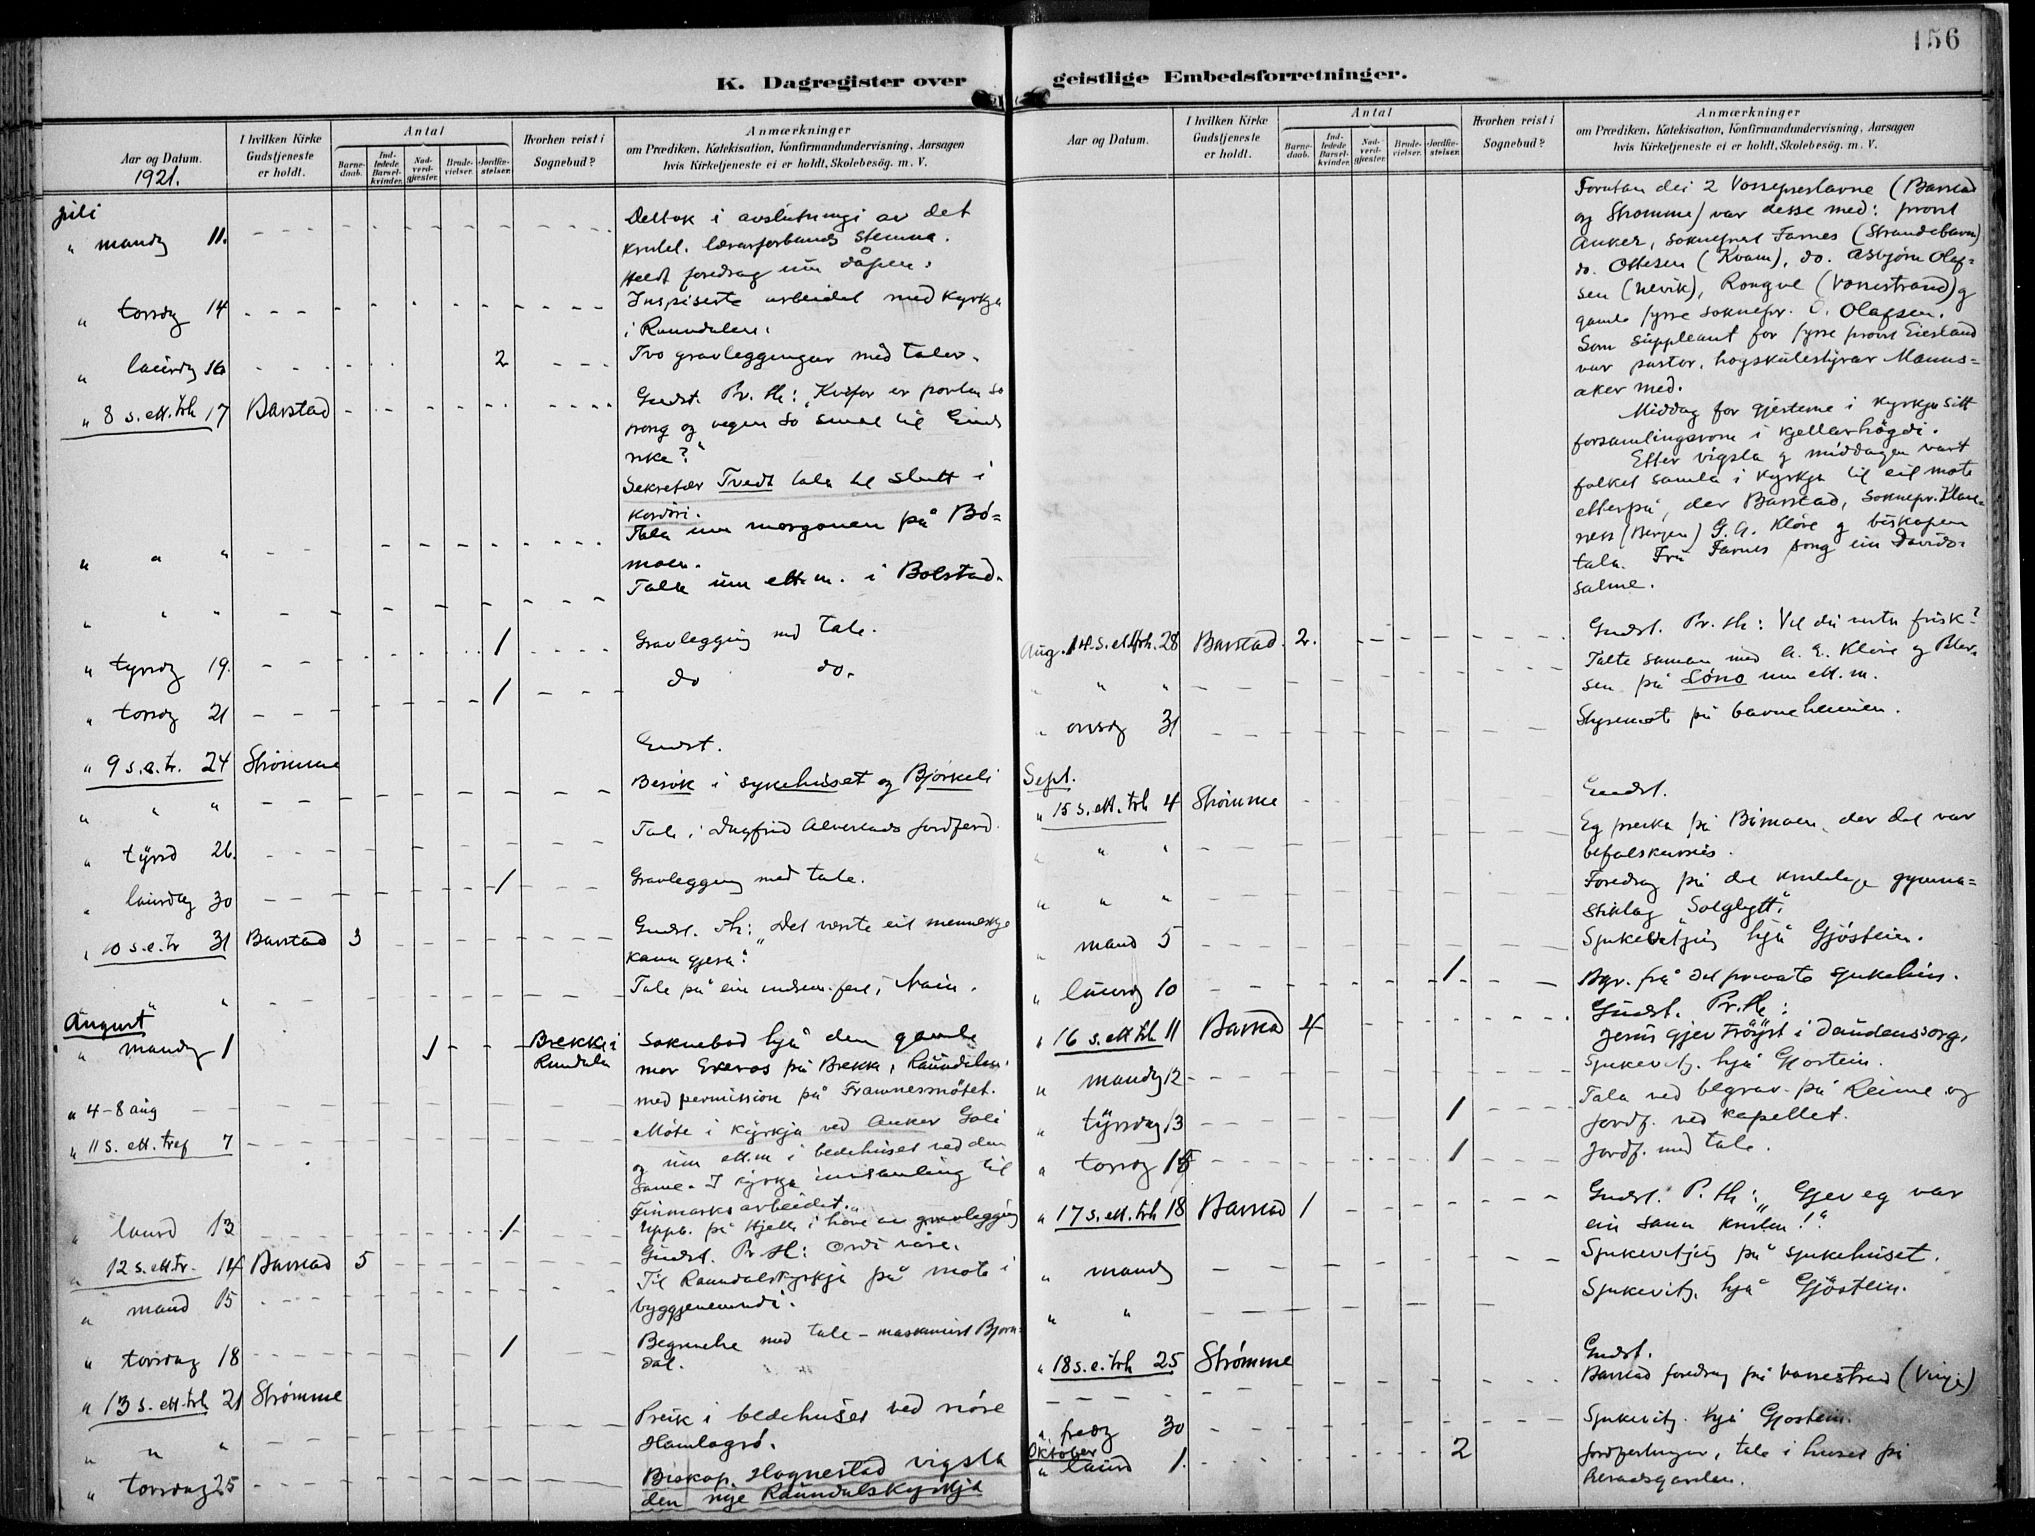 156
K. Dagregister over geistlige Embedsforretninger.
Aar og Datum.
1921.
I hvilken Kirke Gudstjeneste er holdt.
Antal
Barne-daab.
Ind-ledede Barsel-kvinder.
Nad-verd-gjæster.
Brude-vielser.
Jordfæ-stelser.
Hvorhen reist i Sognebud?
Anmærkninger
om Prædiken, Katekisation, Konfirmandundervisning, Aarsagen
hvis Kirketjeneste ei er holdt, Skolebesög. m. V.
juli
" mandg 11.
Deltok i avslutningi av det
kristel. lærarforbunds stemna.
Heldt foredrag um dåpen.
" torsdg 14
Inspiserte arbeidet med kyrkja
i Raundalen.
" laurdg 16 2
Tvo gravleggingar med talar.
" 8 s. ett. trh 17 Barstad
Gudst. Pr. th: "Kvifor er porten so
trong og vegen so smal til Guds
rike?"
Sekretær Tvedt tala til slutt i
kordøri.
" " "
Tala um morgonen på Bö=
moen.
" " "
Tala um ett.m. i Bolstad.
" tyrsdg 19. 1
Gravlegging med tale.
" torsdg 21 1
do do.
" 9 s.e.tr. 24 Strømme
Gudst.
" " "
Besök i sykehuset og Bjørkeli
" tyrsd 26.
Tale i Dagfrid Alverstads jordferd.
" laurdag 30 1
Gravlegging med tale.
" 10 s.e.tr 31 Barstad 3
Gudst. th: "Det verste eit menneskje
kann gjera."
" "
Tale på ein undsm. fest i Nain.
August
" mandg 1 1 Brekke i Rundalen
Soknebod hjå den gamle
mor Ereros på Brekke, Raundalen.
" 4-8 aug
med permission på Framnesmötet.
" 11 s. ett. tref 7
Möte i kyrkja ved Anker Goli
og um ett.m i bedehuset ved den
same. I kyrkja innsamling til
Finmarksarbeidet.
" laurd 13 1
Uppb. på Hjelle i höve av gravlegging
" 12 s. ett. tr. 14 Barstad 5
Gudst. Pr. th: Ordi våre.
" mand 15
Til Raundalskyrkja på möte i
byggjenemndi.
" torsdag 18 1
Begravelse med tale - maskinist Bjørn=
dal.
" 13 s. ett. trh 21 Strømme
" " "
Preik i bedehuset ved nöre
Hamlagrö.
" torsdag 25
Biskop Hognestad vigsla
den nye Raundalskyrkja
Aar og Datum.
I hvilken Kirke Gudstjeneste er holdt.
Antal
Barne-daab.
Ind-ledede Barsel-kvinder.
Nad-verd-gjæster.
Brude-vielser.
Jordfæ-stelser.
Hvorhen reist i Sognebud?
Anmærkninger
om Prædiken, Katekisation, Konfirmandundervisning, Aarsagen
hvis Kirketjeneste ei er holdt, Skolebesög. m. V.
Forutan dei 2 Vosseprestarne (Barstad
og Strømme) var desse med: prost
Anker, sokneprest Farnes (Strandebarm)
do. Ottesen (Kvam), do. Asbjørn Olaf=
sen (Ulvik), Rongve (Vossestrand) g
gamle fyrre soknepr. O. Olafsen.
Som suppleant for fyrre prost Eiesland
var pastor, hogskulestyrar Manns-
aker med.
Middag for gjesterne i kyrkja sitt
forsamlingsrom i kjellarhögdi.
Etter vigsla g middagen vart
folket samla i kyrkja til eit möte
etterpå, der Barstad, soknepr. Klave-
ness (Bergen) G. A. Klöve g biskopen
tala. Fru Farnes song ein Davids-
salme.
Aug. 14. s. ett trh. 28 Barstad 2.
Gudst. Pr. th: Vil du verta frisk?
" " "
Talte saman med G. A. Klöve og Peter-
sen på Löno um ett. m.
" onsdg 31
Styremöte på barneheimen.
Sept.
" 15 s. ett. trh 4 Strømme
Gudst.
" " "
Eg preika på Bömoen, der det var
befalskursus.
" " "
Foredrag på det kristelege gymna=
stiklag "Solglytt."
" mand 5
Sjukevitjing hjå Gjöstein.
" laurdg 10 1
Bgr. frå det private sjukehus.
" 16 s. ett trh 11 Barstad 4
Gudst. Pr. th:
Jesus gjev tröyst i daudenssorg.
" mandg 12
Sjukevitj. hjå Gjostein.
" tyrsdag 13 1
Tala ved begrav. på Reime og
jordf. ved kapellet.
" torsdg 15 1
Jordf. med tale.
" 17 s. ett. trh 18 Barstad 1
Gudst. P. th: "Gjev eg var
ein sann kristen!"
" mandg
Sjukevitjing på sjukehuset.
" "
Sjukevitj. hjå Gjöstein.
" 18 s. e. trh 25 Strømme
Gudst.
Barstad foredrag på Vossestrand (Vinje)
" fredg 30
Sjukevitj. hjå Gjostein.
Oktober
" laurd 1. 2
Jordfestingar, tale i huset på